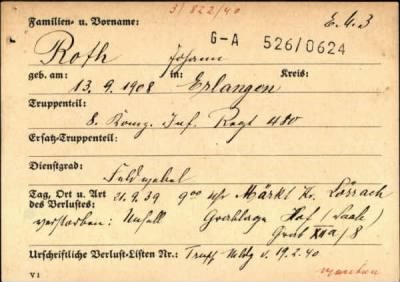 3/822/40
Familien- u. Vorname: E.M.3
Roth Johann G-A 526/0624
geb. am: in: Kreis:
13. 9. 1908 Erlangen
Truppenteil:
8. Komp. Inf. Regt 480
Ersatz-Truppenteil:
Dienstgrad:
Feldwebel
Tag, Ort u. Art des Verlustes: 21. 9. 39 9 00 Uhr Märkt Kr. Lörrach
verstorben: Unfall Grablage Hof (Saale)
Grab XIIa/8
Urschriftliche Verlust-Listen Nr.: Trupp Meldg v. 19. 2. 40
V1